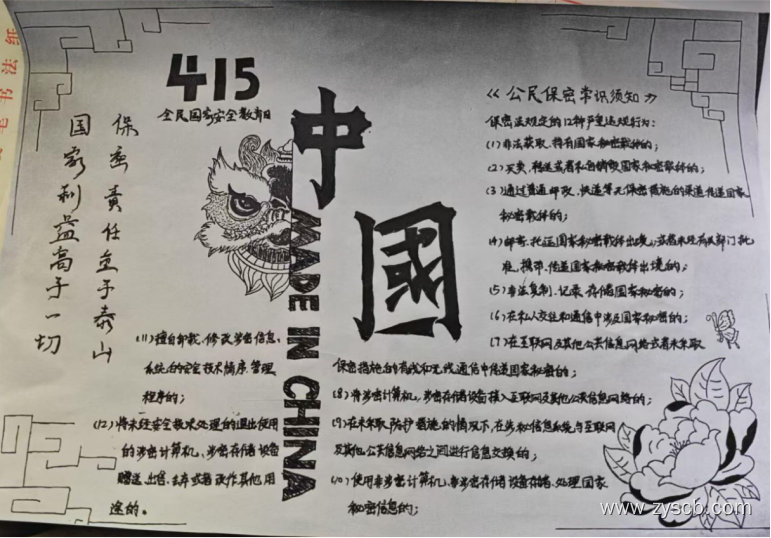 毛书法纸
415
全民国家安全教育日
保密责任重于泰山
国家利益高于一切
中國
MADE IN CHINA
《公民保密常识须知》
保密法规定的12种严重违规行为:
(1)非法获取、持有国家秘密载体的;
(2)买卖、转送或者私自销毁国家秘密载体的;
(3)通过普通邮政、快递等无保密措施的渠道传递国家
秘密载体的;
(4)邮寄、托运国家秘密载体出境,或者未经有关部门批
准,携带、传递国家秘密载体出境的;
(5)非法复制、记录、存储国家秘密的;
(6)在私人交往和通信中涉及国家秘密的;
(7)在互联网及其他公共信息网络或者未采取
保密措施的有线和无线通信中传递国家秘密的;
(8)将涉密计算机、涉密存储设备接入互联网及其他公共信息网络的;
(9)在未采取防护措施的情况下,在涉秘信息系统与互联网
及其他公共信息网络之间进行信息交换的;
(10)使用非涉密计算机、非涉密存储设备存储、处理国家
秘密信息的;
(11)擅自卸载、修改涉密信息
系统的安全技术程序、管理
程序的;
(12)将未经安全技术处理的退出使用
的涉密计算机、涉密存储设备
赠送、出售、丢弃或者改作其他用
途的。
www.zyscb.com